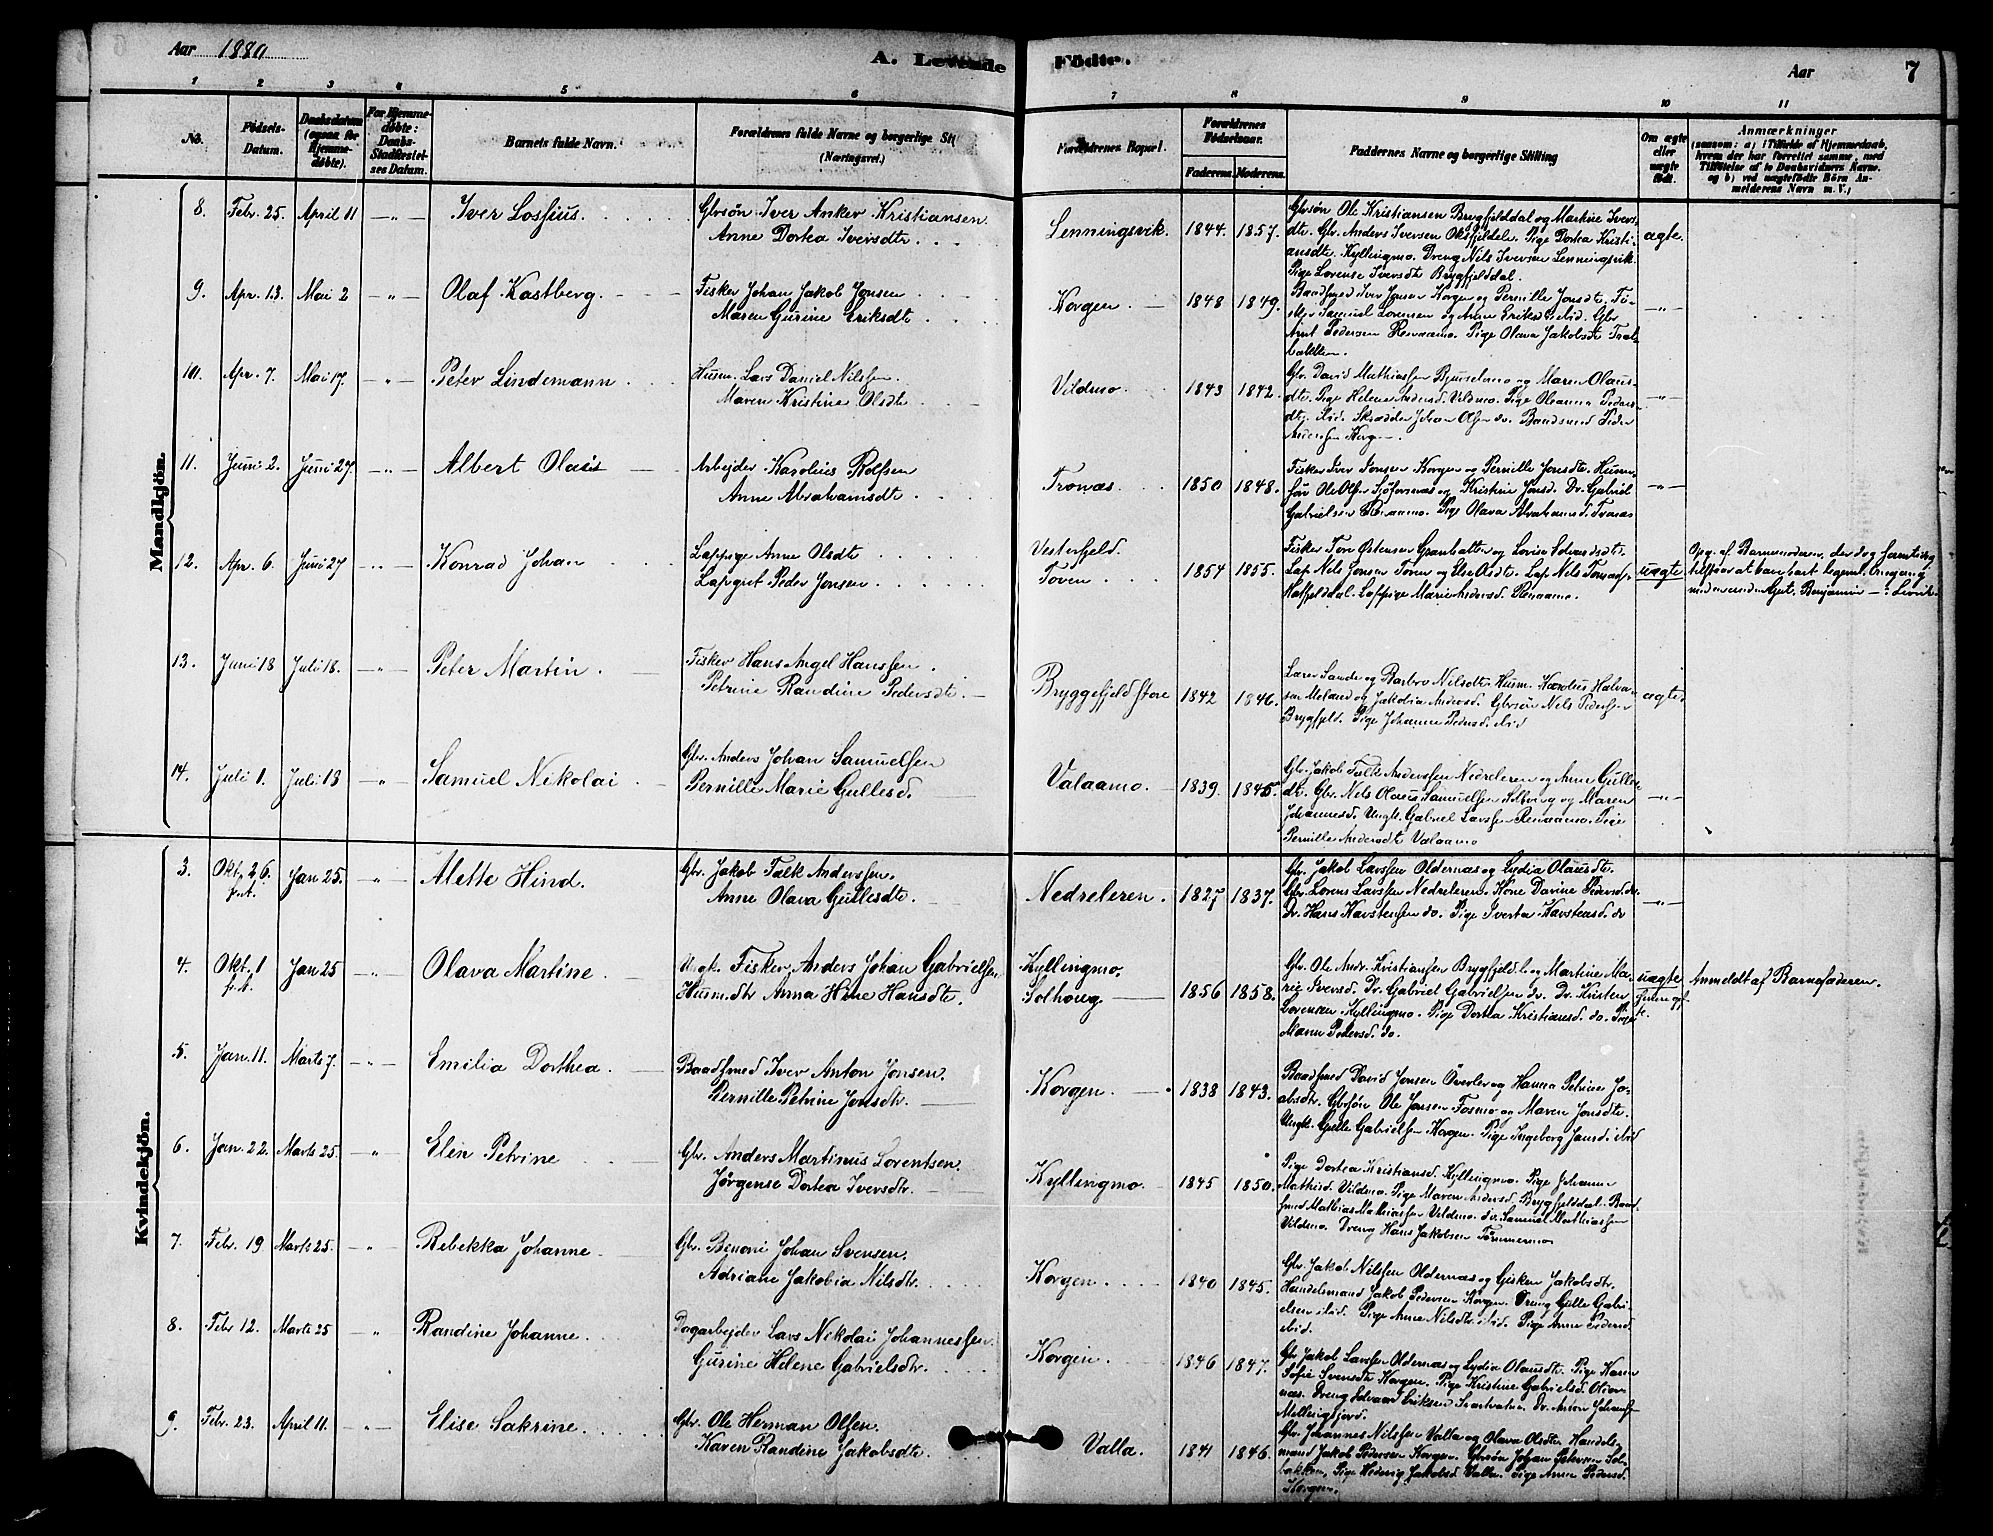 Aar 1880
A. Levende Födte.
Aar
7
1 2 3 4 5 6 7 8 9 10 11
No.
Födsels-Datum.
Daabsdatum (ogsaa for Hjemmedöbte).
For Hjemmedöbte: Daabs-Stadfæstelses Datum.
Barnets fulde Navn.
Forældrenes fulde Navne og borgerlige Stil (Næringsvei.)
Forældrenes Bopæl.
Forældrenes Födselsaar.
Faderens. Moderens.
Faddernes Navne og borgerlige Stilling
Om ægte eller uægte födt.
Anmærkninger
(saasom: a) i Tilfælde af Hjemmedaab, hvem der har forrettet samme, med Tilföielse af to Daabsvidners Navne. og b) ved uægtefödte Börn Anmelderens Navn m. V.)
Mandkjön.
8. Febr. 25. April 11 —"— Iver Losfius.
Gbrsøn Iver Anker Kristiansen.
Anne Dortea Iversdtr.
Lenningsvik. 1844. 1857.
Gbrsøn Ole Kristiansen Brygfjelddal og Martine Ivers-
dtr. Gbr. Anders Iversen Oksfjeldelv. Pige Dortea Kristi-
ansdtr. Kyllingmo. Dreng Nils Iversen Lenningsvik.
Pige Lorense Iversdtr Brygfjelddal.
ægte.
9. Apr. 13. Mai 2 —"— Olaf Kastberg.
Fisker Johan Jakob Jonsen
Maren Gurine Eriksdtr.
Korgen. 1848 1849.
Baadsmed Iver Jonsen Korgen og Pernille Jonsdtr. Fi-
sker Samuel Lorensen og Anne Eriksdtr ibid. Gbr
Arnt Pedersen Renaamo. Pige Olava Jakobsdtr
—"—
10. Apr. 7. Mai 17. —"— Peter Lindemann
Husm. Lars Daniel Nilssen.
Maren Kristine Olsdtr
Vildmo. 1843 1842.
Gbr. David Mathiassen og Maren Olaus-
dtr. Pige Helene Andersd. Vildmo. Pige Oleanna Peders-
dtr. ibid. Skrædder Johan Olsen do. Baadsmed Peder
Andersen Korgen.
—"—
11. Juni 2. Juni 27. —"— Albert Olaus
Arbejder Karolius Rolfsen
Anne Abrahamsdtr.
Tronæs. 1850 1848.
Fisker Iver Jonsen Korgen og Pernille Jonsdtr. Husm.
før Ole Olsen Sjøforsnæs og Kristine Jonsd. Dr. Gabriel
Gabrielsen Renaamo. Pige Olava Abrahamsd. Tronæs
—"—
12. Apr. 6. Juni 27 —"— Konrad Johan
Lappige Anne Olsdtr
Lapgut Peder Jonsen.
Vesterfjeld.
Toven. 1854 1855.
Fisker Tore Østensen Granbatten og Lovise Edvardsdtr.
Lap Nils Jonsen Toven og Else Olsdtr. Lap Nils Tomass.
Hatfjelddal. Lappige Marie Andersd. Renaamo.
uægte
Opg. af Barnemoderen, der dog samtidig
tilstaar at have havt legeml. Omgang
med en anden Gjut. Benjamin
13. Juni 18 Juli 18. —"— Peter Martin.
Fisker Hans Angel Hanssen.
Petrine Randine Pedersdtr.
Bryggefjeld store 1842 1846.
Lærer Sande og Barbro Nilsdtr. Husm. Karolius Halvor-
sen Moland og Jakobia Andersd. Gbrsøn Nils Pedersen
Brygfjeld. Pige Johanna Pedersd. ibid
ægte.
14. Juli 1. Juli 18 —"— Samuel Nikolai
Gbr. Anders Johan Samuelsen
Pernille Marie Gullesd.
Valaamo. 1839. 1845.
Gbr. Jakob Falk Anderssen Nedreleren og Anne Gulles-
dtr. Gbr. Nils Olaus Samuelsen Solberg og Maren
Johannesd. Ungk. Gabriel Larssen Renaamo. Pige
Pernille Andersdtr Valaamo
—"—
Kvindekjön.
3. Okt. 26. f.A. Jan 25. " Alette Hind.
Gbr. Jakob Falk Anderssen.
Anne Olava Gullesdtr.
Nedreleren. 1827 1837.
Gbr. Jakob Larssen Oldernæs og Lydia Olausdtr.
Gbr. Lorens Larssen Nedreleren. Kone Davine Pedersd. do.
Dr. Hans Karstensen do. Pige Iverta Karstensd. do
—"—
4. Okt. 1 f.A. Jan 25 " Olava Martine
Ungk. Fisker Anders Johan Gabrielsen
Husm.dtr Anna Hine Hansdtr.
Kyllingmo.
Solhoug 1856 1858.
Gbr. Ole Andr. Kristiansen Brygfjeld.l. og Martine Ma-
rie Iversd. Dr. Gabriel Gabrielsen do. Dr. Kristen
Lorensen Kyllingmo. Pige Dortea Kristiansd. do. Pige
Maren Pedersd. do.
uægte
Anmeldt af Barnefaderen.
5. Jan. 11. Marts 7. —"— Emilia Dorthea.
Baadsmed Iver Anton Jonsen.
Pernille Petrine Jonsdtr.
Korgen. 1838 1843.
Baadsmed David Jonsen Överlev og Hanna Petrine Ja-
kobsdtr. Gbrsøn Ole Jonsen Fosmo og Maren Jonsdtr.
Ungk. Gulle Gabrielsen Korgen. Pige Ingeborg Jonsd. ibid
6. Jan. 22. Marts 25. " Elen Petrine
Gbr. Anders Martinus Lorentsen.
Jörgense Dortea Iversdtr.
Kyllingmo. 1845 1850.
Pige Dortea Kristiansd. Kyllingmo. Pige Johanne
Mathisd. Vildmo. Pige Maren Andersd. Brygfjelddal. Baad-
smed Mathias Mathiassen Vildmo. do. Samuel Mathiassen
Vildmo. Dreng Hans Jakobsen Tömmermo
7. Febr. 19 Marts 25. " Rebekka Johanne
Gbr. Benoni Johan Svensen.
Adriane Jakobia Nilsdtr.
Korgen. 1840 1845.
Gbr. Jakob Nilssen Oldernæs og Gisken Jakobsdtr.
Handelsmand Jakob Pedersen Korgen. Dreng Gulle Gabri-
elsen ibid. Pige Anne Nilsdtr. ibid. Pige Anne Pedersd.
ibid.
8. Febr 12. Marts 25 " Randine Johanne.
Dagarbejder Lars Nikolai Johannessen.
Gurine Helene Gabrielsdtr.
Korgen. 1846 1847.
Gbr Jakob Larssen Oldernæs og Lydia Olausdtr. Pige Karen
Sofie Svensdtr Korgen. Pige Kristine Gabrielsd.
Dreng Edvard Eriksen Svartvatn. Dr. Anton Johanss.
9. Febr. 23. April 11. —"— Elise Sakrine.
Gbr. Ole Herman Olsen.
Karen Randine Jakobsdtr.
Valla. 1841 1846.
Gbr. Johannes Nilssen Valla og Olava Olsdtr. Handels-
mand Jakob Pedersen Korgen. Gbrsøn Johan Østensen Sol-
bakken. Pige Hedevig Jakobsd. Valla. Pige Anne Pedersd.
Korgen.